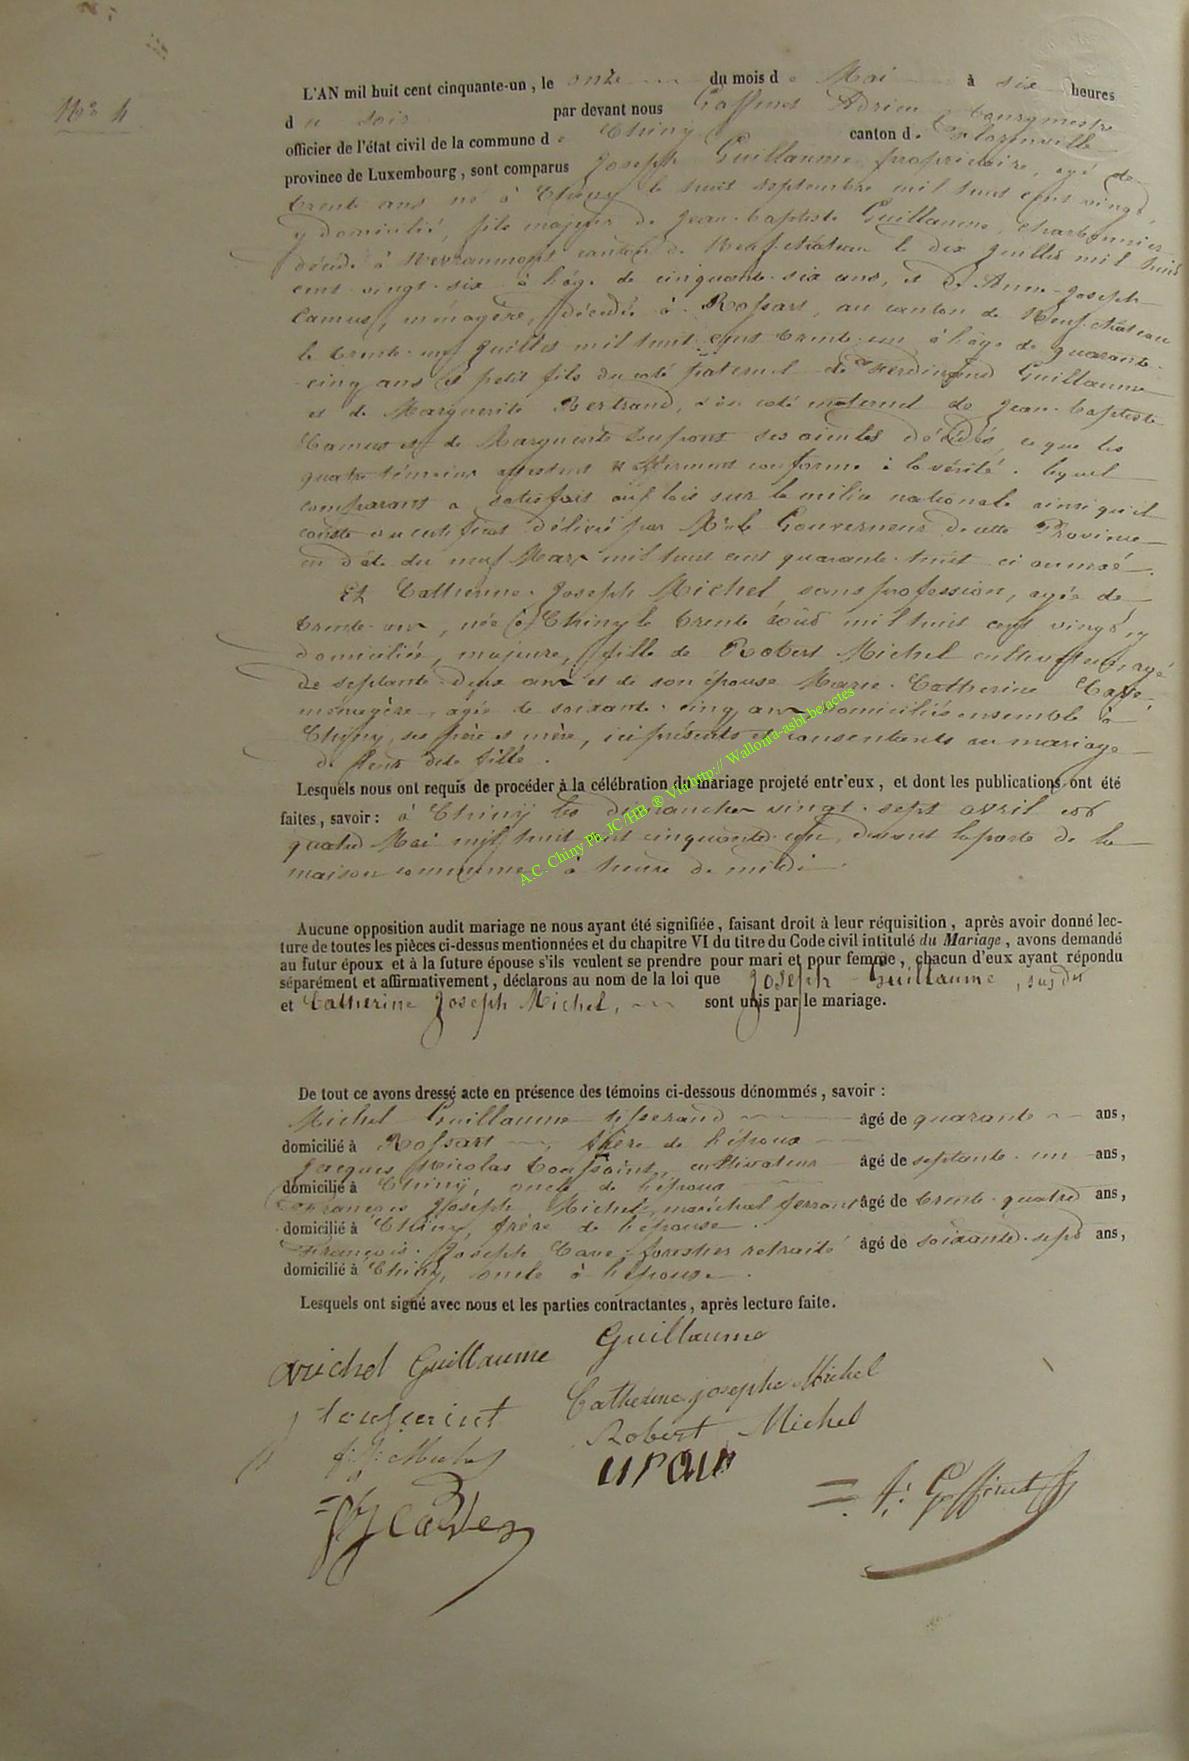 N° 4
L'AN mil huit cent cinquante-un, le onze du mois de Mai à six heures
du soir par devant nous Goffinet Adrien bourgmestre
officier de l'état civil de la commune de Chiny canton de Florenville
province de Luxembourg, sont comparus Joseph Guillaume, propriétaire, agé de
trente ans né à Chiny le huit septembre mil huit cent vingt,
y domicilié, fils majeur de Jean-baptiste Guillaume, charbonnier
décédé à Nevraumont canton de Neufchâteau le dix juillet mil huit
cent vingt-six à l'âge de cinquante-six ans, et de Anne-Joseph
Camus, ménagère, décédée à Rossart, au canton de Neufchâteau
le trente-un juillet mil huit cent trente-un à l'âge de quarante-
cinq ans et petit fils du coté paternel de Ferdinand Guillaume
et de Marguerite Bertrand, d'un coté maternel de Jean-baptiste
Camus et de Marguerite ses aieules décédés, ce que les
quatre témoins attestent & affirment conforme à la vérité. lequel
comparant a satisfait aux lois sur la milice nationale ainsi qu'il
conste au certificat délivré par Mr le Gouverneur de cette Province
en date du neuf Mars mil huit cent quarante-huit ci annexé.
Et Catherine-Joseph Michel, sans profession, agée de
trente ans, née à Chiny le trente août mil huit cent vingt, y
domiciliée, majeure, fille de Robert Michel cultivateur, agé
de septante-deux ans et de son épouse Marie-Catherine Cave,
ménagère, agée de soixante-cinq ans domiciliés ensemble à
Chiny, ses père et mère, ici présents et consentants au mariage
de leur dite fille.
Lesquels nous ont requis de procéder à la célébration du mariage projeté entr'eux, et dont les publications ont été
faites, savoir: à Chiny les dimanches vingt-sept avril et
quatre Mai mil huit cent cinquante-un, devant la porte de la
maison commune à heure de midi.
A.C. Chiny Ph. JC/HB ® Via http:// Wallonia-asbl.be/actes
Aucune opposition audit mariage ne nous ayant été signifiée, faisant droit à leur réquisition, après avoir donné lec-
ture de toutes les pièces ci-dessus mentionnées et du chapitre VI du titre du Code civil intitulé du Mariage, avons demandé
au futur époux et à la future épouse s'ils veulent se prendre pour mari et pour femme, chacun d'eux ayant répondu
séparément et affirmativement, déclarons au nom de la loi que Joseph Guillaume, susdit
et Catherine Joseph Michel, sont unis par le mariage.
De tout ce avons dressé acte en présence des témoins ci-dessous dénommés, savoir:
Michel Guillaume tisserand âgé de quarante ans,
domicilié à Rossart, frère de l'époux
Jacques Nicolas Toussaint, cultivateur âgé de septante-un ans,
domicilié à Chiny, oncle de l'époux
François Joseph Michel, maréchal ferrant âgé de trente-quatre ans,
domicilié à Chiny, frère de l'épouse.
François-Joseph Cave forestier retraité âgé de soixante-sept ans,
domicilié à Chiny, oncle à l'épouse.
Lesquels ont signé avec nous et les parties contractantes, après lecture faite.
Michel Guillaume Guillaume
Catherine josephe Michel
toussaint
Robert Michel
f: j: Michel
A: Goffinet